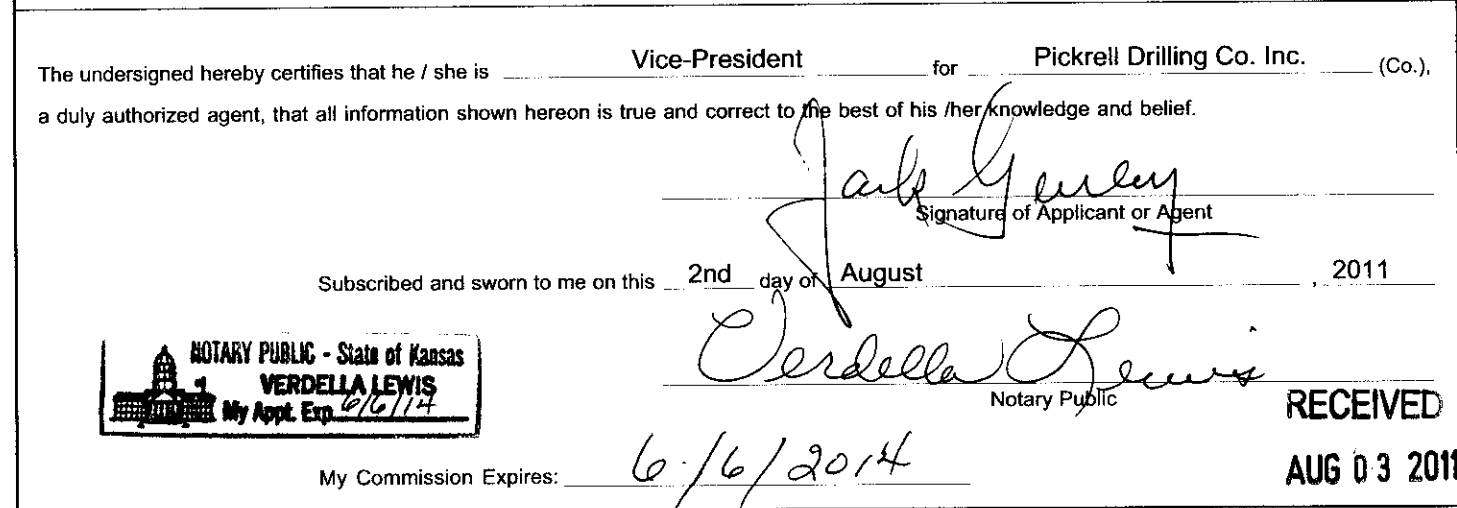 The undersigned hereby certifies that he / she is Vice-President for Pickrell Drilling Co. Inc. (Co.),
a duly authorized agent, that all information shown hereon is true and correct to the best of his /her knowledge and belief.
Jack Gurley
Signature of Applicant or Agent
Subscribed and sworn to me on this 2nd day of August , 2011
Verdella Lewis
Notary Public
NOTARY PUBLIC - State of Kansas
VERDELLA LEWIS
My Appt. Exp. 6/6/14
My Commission Expires: 6/6/2014
RECEIVED
AUG 03 2011